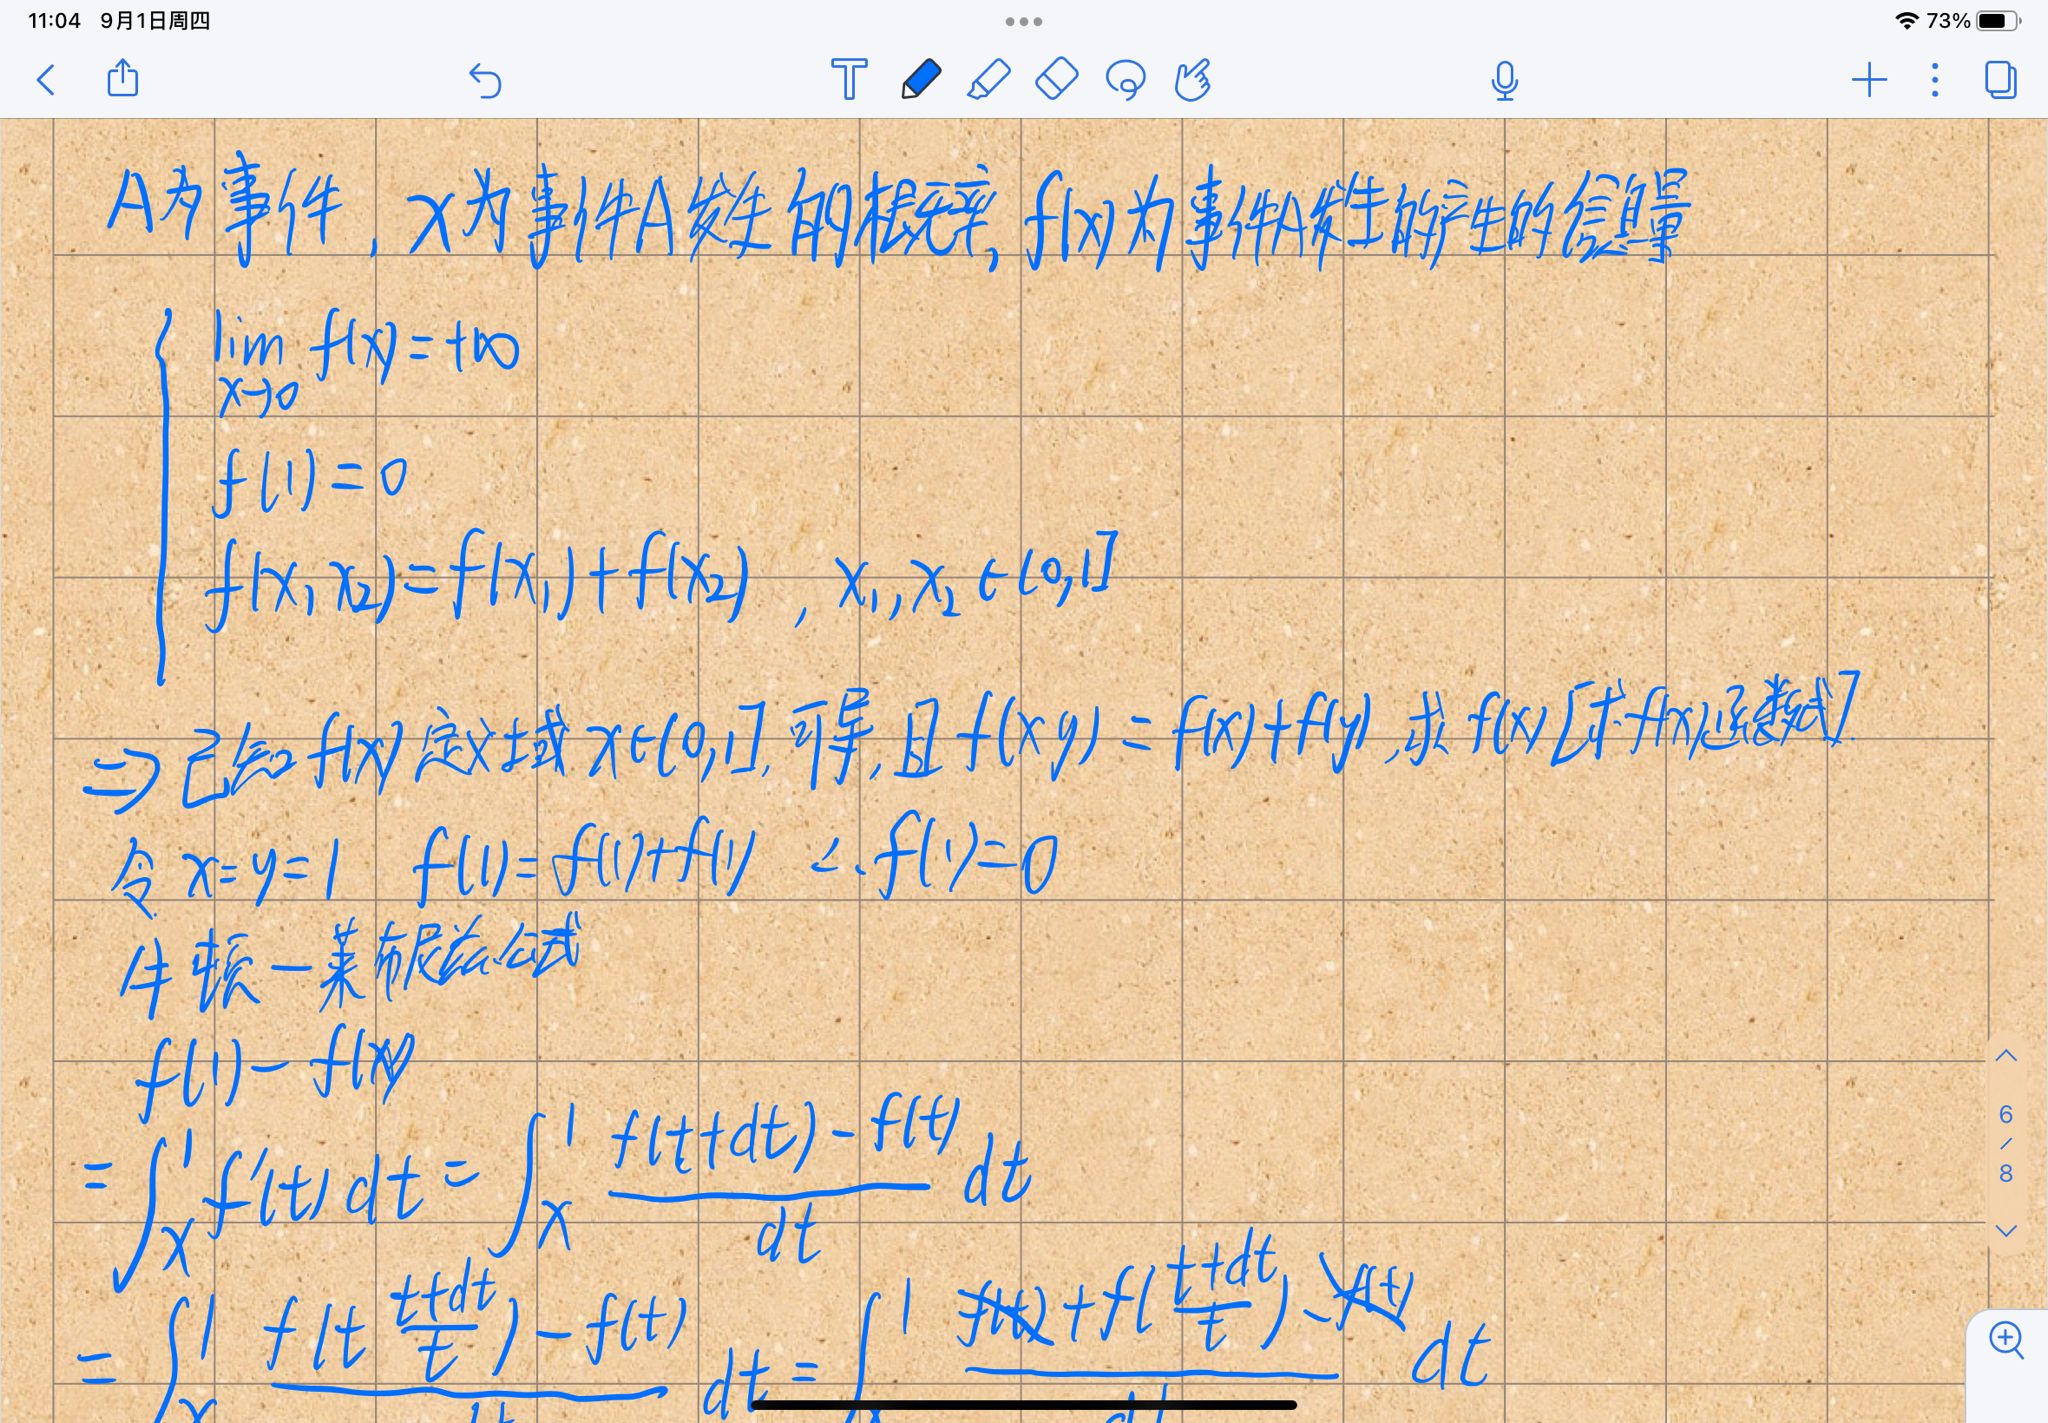 11:04 9月1日周四
73%
A为事件, x为事件A发生的概率, f(x)为事件A发生的产生的信息量
lim f(x)=+∞
x→0
f(1)=0
f(x₁x₂)=f(x₁)+f(x₂), x₁,x₂∈(0,1]
⇒已知f(x)定义域x∈(0,1],可导,且f(xy)=f(x)+f(y),求f(x)[求f(x)函数式].
令x=y=1 f(1)=f(1)+f(1) ∴f(1)=0
牛顿—莱布尼兹公式
f(1)-f(x)
=∫ₓ¹f'(t)dt=∫ₓ¹ (f(t+dt)-f(t))/dt dt
=∫ₓ¹ (f(t (t+dt)/t)-f(t))/dt dt=∫ₓ¹ (f(t)+f((t+dt)/t)-f(t))/dt dt
6
/
8